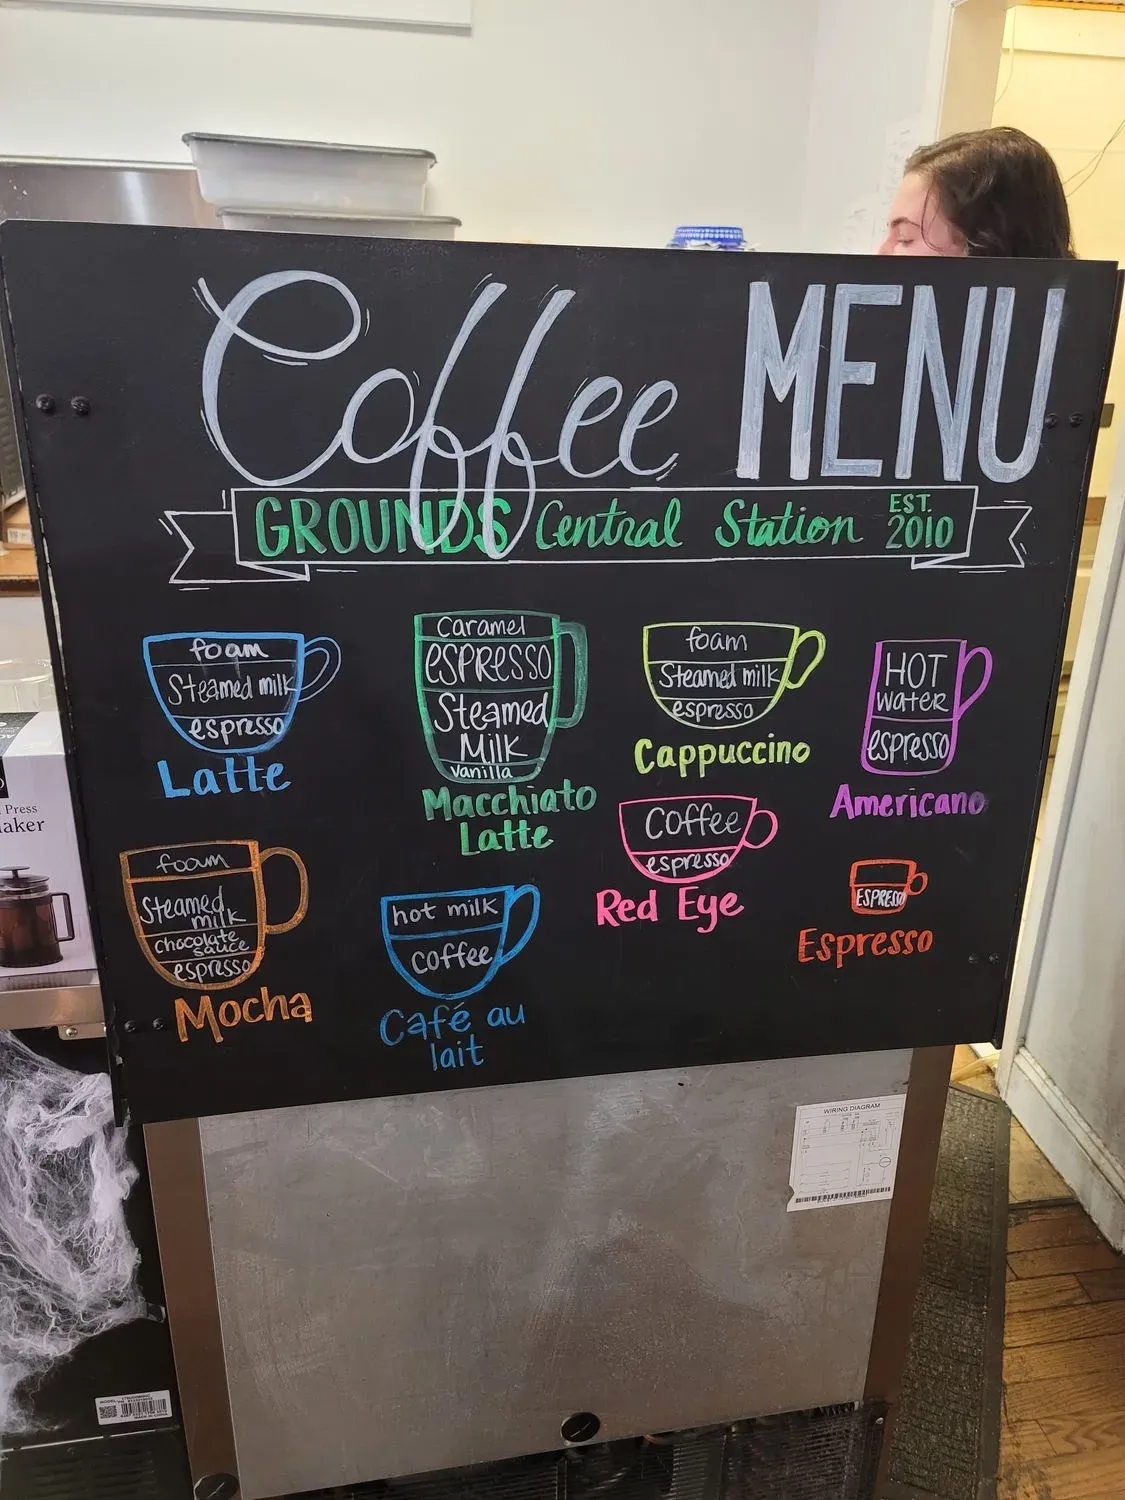 Coffee MENU
GROUNDS Central Station EST. 2010
foam
Steamed milk
espresso
Latte
Caramel
ESPRESSO
Steamed
Milk
vanilla
Macchiato
Latte
foam
Steamed milk
espresso
Cappuccino
HOT
water
espresso
Americano
foam
Steamed
milk
chocolate
sauce
espresso
Mocha
hot milk
coffee
Café au
lait
Coffee
espresso
Red Eye
ESPRESSO
Espresso
Press
WIRING DIAGRAM